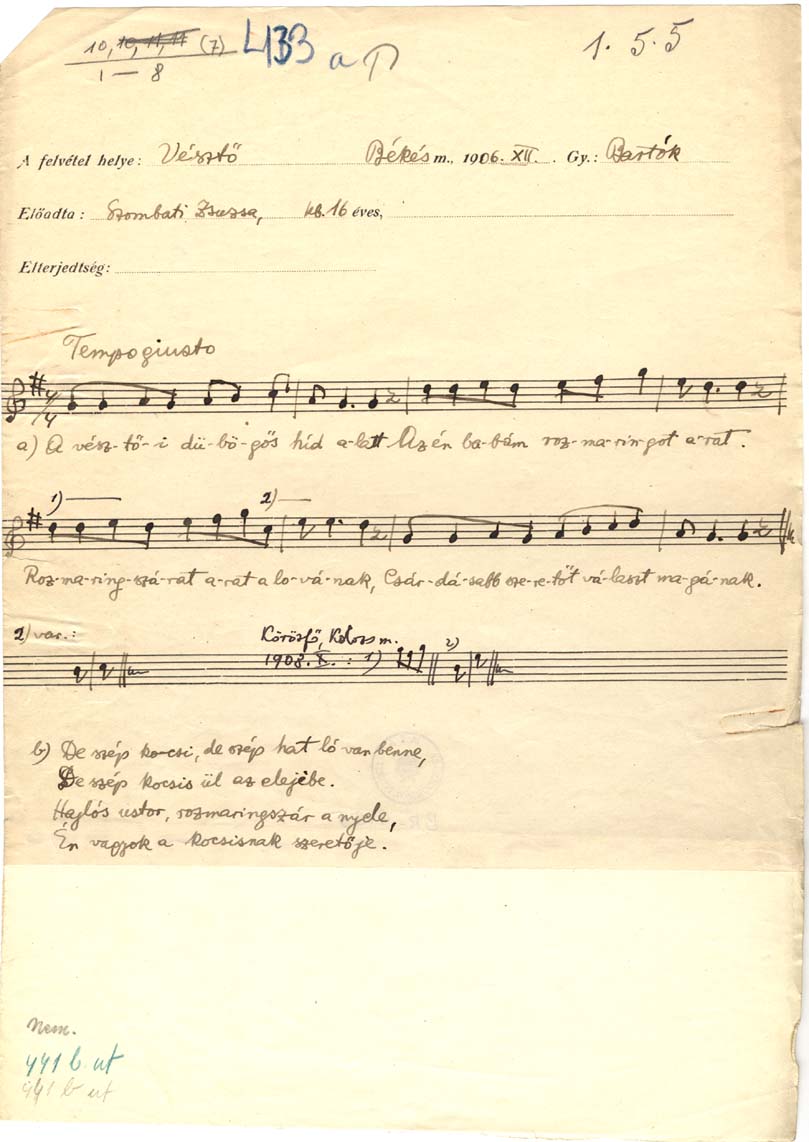 10, 10, 11, 11 (7) 433 a
1 — 8
1. 5. 5
A felvétel helye: Vésztő Békés m., 1906. XII. Gy.: Bartók
Előadta: Szombati Zsuzsa, kb. 16 éves,
Elterjedtség:
Tempo giusto
4/4
a) A vész-tő-i dü-bö-gős híd a-latt Az én ba-bám roz-ma-rin-got a-rat.
1) 2)
Roz-ma-ring-szá-rat a-rat a lo-vá-nak, Csár-dá-sabb sze-re-tőt vá-laszt ma-gá-nak.
2) var.: Körösfő, Kolozs m.
1908. X. : 1) 2)
b) De szép kocsi, de szép hat ló van benne,
De szép kocsis ül az elejébe.
Hajlós ustor, rozmaringszár a nyele,
Én vagyok a kocsisnak szeretője.
Nem.
441 b ut
441 b ut